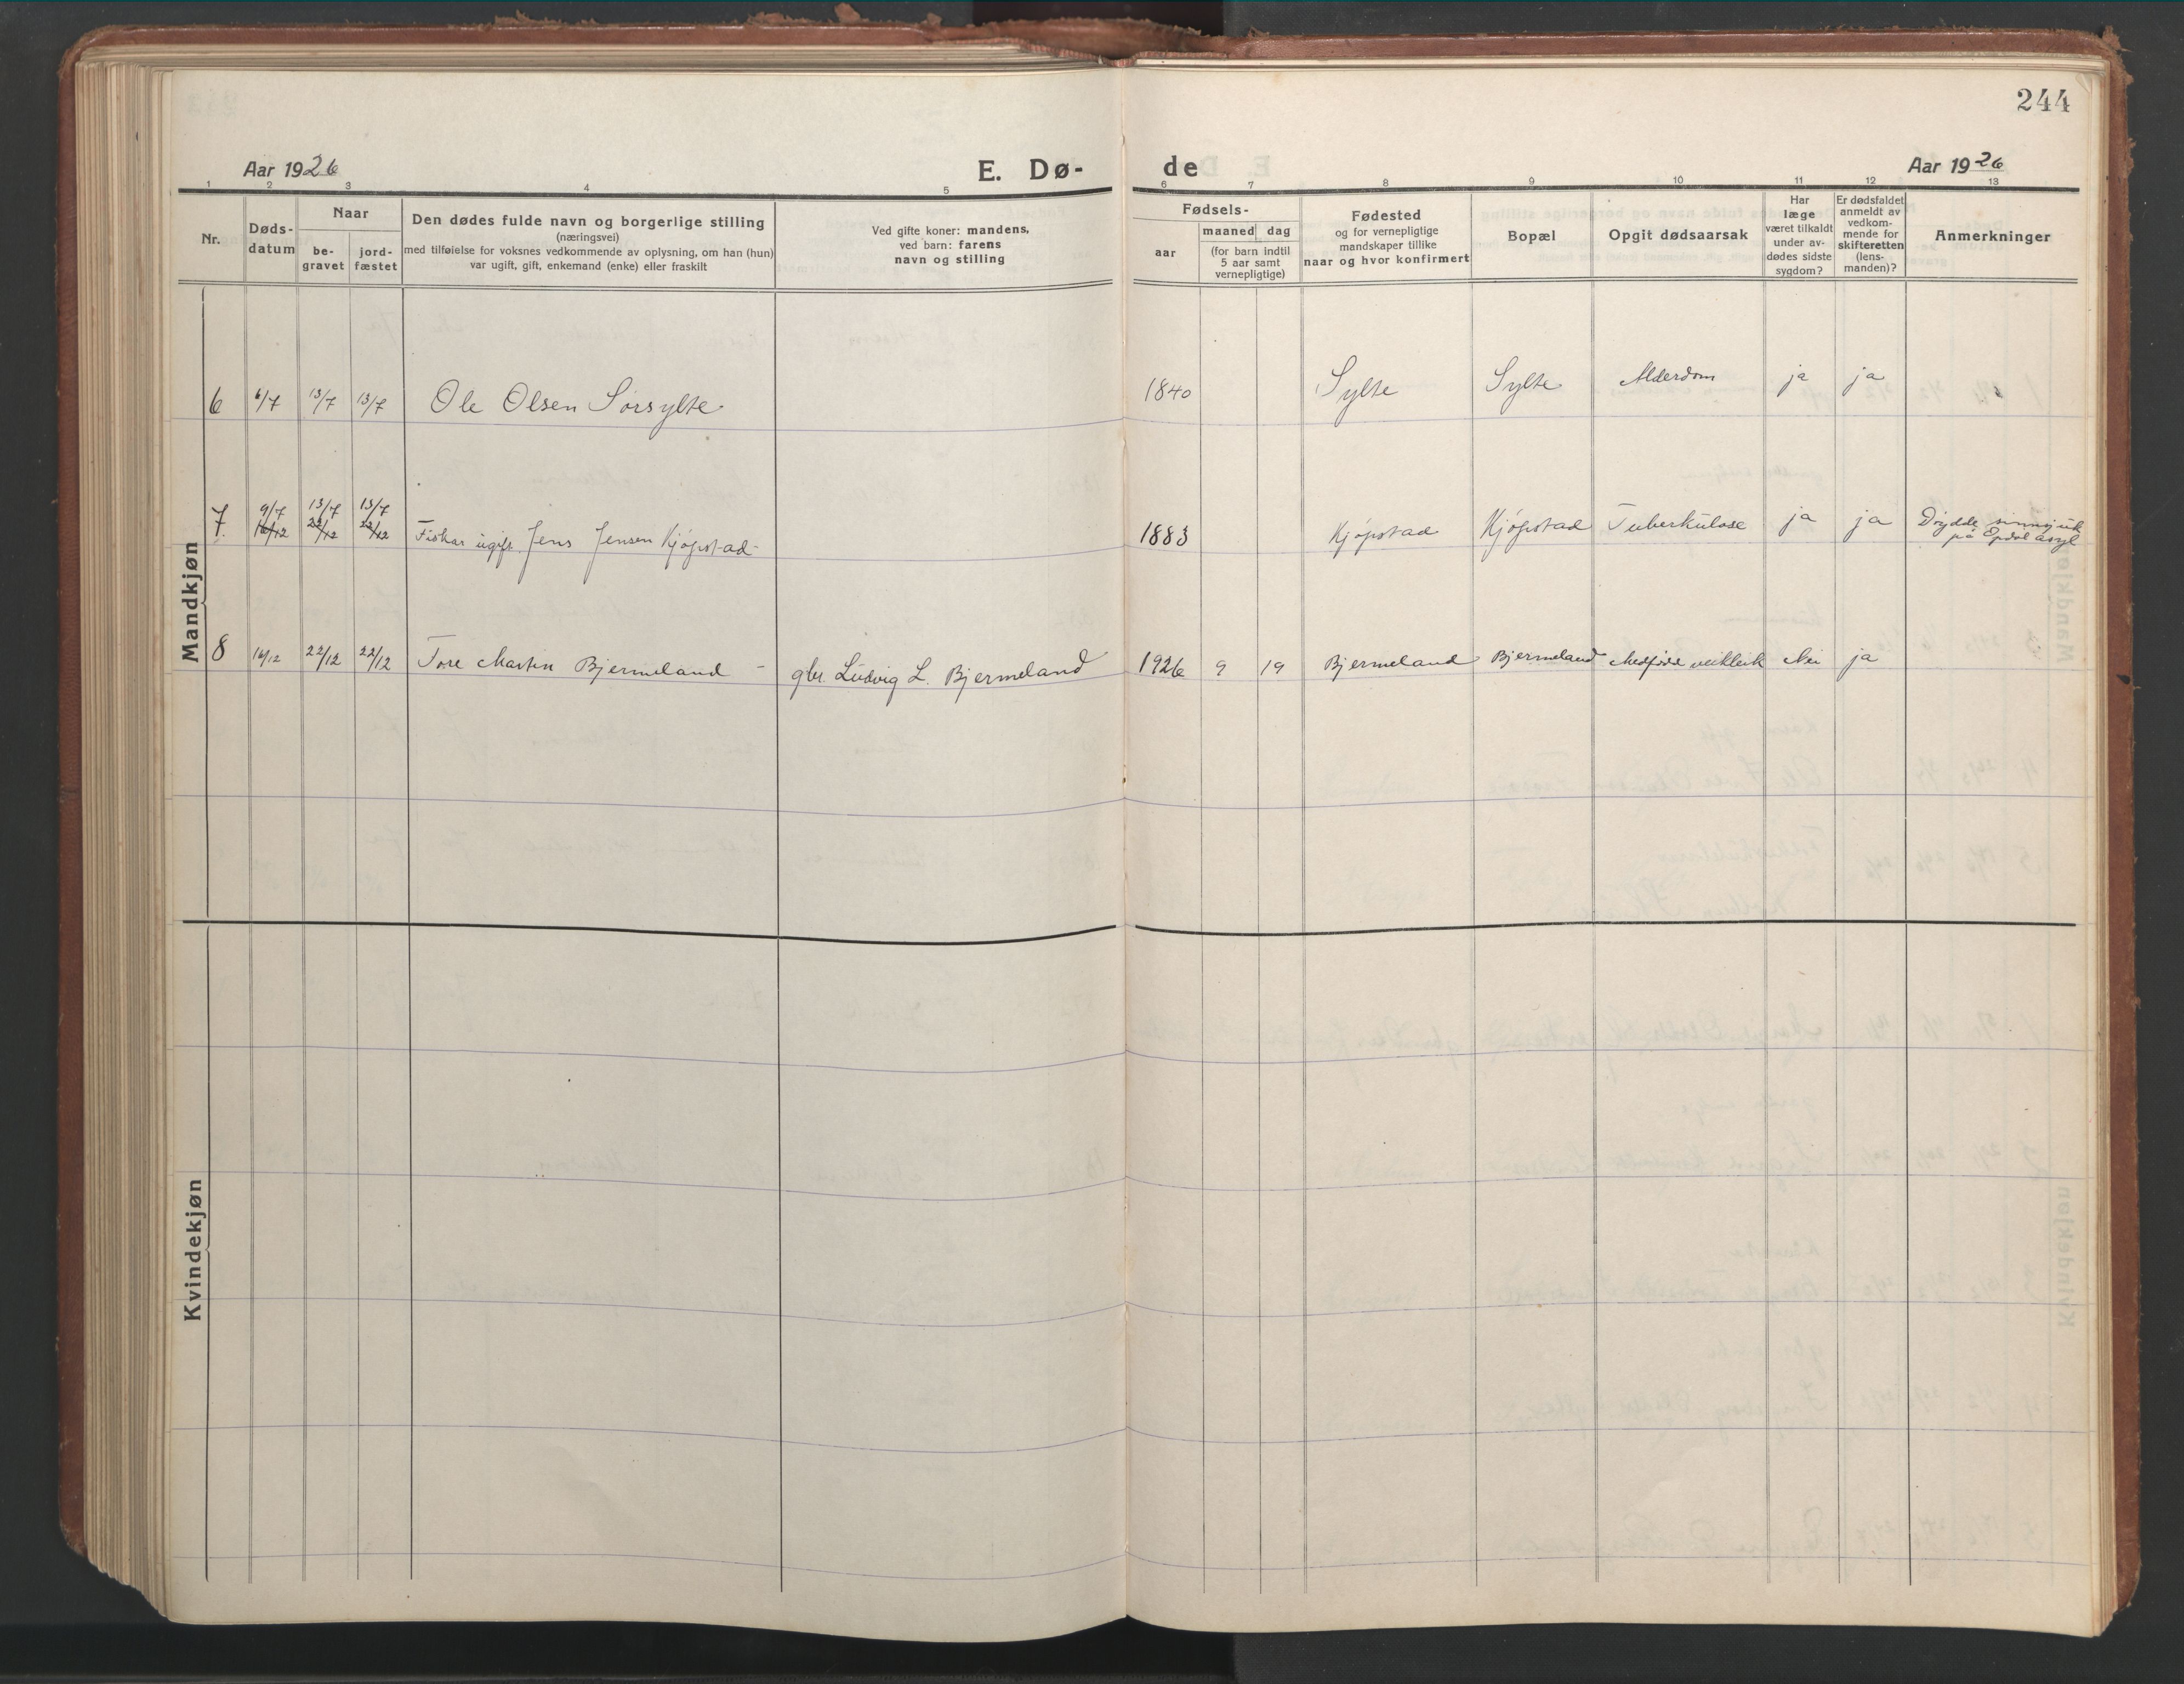 244
Aar 1926
E. Dø-
de
Aar 1926
1 2 3 4 5 6 7 8 9 10 11 12 13
Nr.
Døds-
datum
Naar
be-
gravet
jord-
fæstet
Den dødes fulde navn og borgerlige stilling
(næringsvei)
med tilføielse for voksnes vedkommende av oplysning, om han (hun)
var ugift, gift, enkemand (enke) eller fraskilt
Ved gifte koner: mandens,
ved barn: farens
navn og stilling
Fødsels-
aar
maaned dag
(for barn indtil
5 aar samt
vernepligtige)
Fødested
og for vernepligtige
mandskaper tillike
naar og hvor konfirmert
Bopæl
Opgit dødsaarsak
Har
læge
været tilkaldt
under av-
dødes sidste
sygdom?
Er dødsfaldet
anmeldt av
vedkom-
mende for
skifteretten
(lens-
manden)?
Anmerkninger
Mandkjøn
6 6/7 13/7 13/7 Ole Olsen Sørsylte 1840 Sylte Sylte Alderdom ja ja
9/7 13/7 13/7
7. 16/12 22/12 22/12 Fiskar ugift Jens Jensen Kjøpstad 1883 Kjøpstad Kjøpstad Tuberkulose ja ja Døydde sinnsjuk
på asyl
8 16/12 22/12 22/12 Tore Martin Bjermeland - gbr. Ludvig L. Bjermeland 1926 9 19 Bjermeland Bjermeland Medfødd veikleik Nei ja
Kvindekjøn